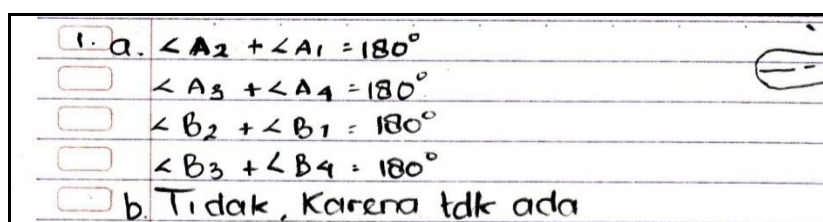 1. a. < A2 + < A1 = 180°
< A3 + < A4 = 180°
< B2 + < B1 = 180°
< B3 + < B4 = 180°
b. Tidak, Karena tdk ada